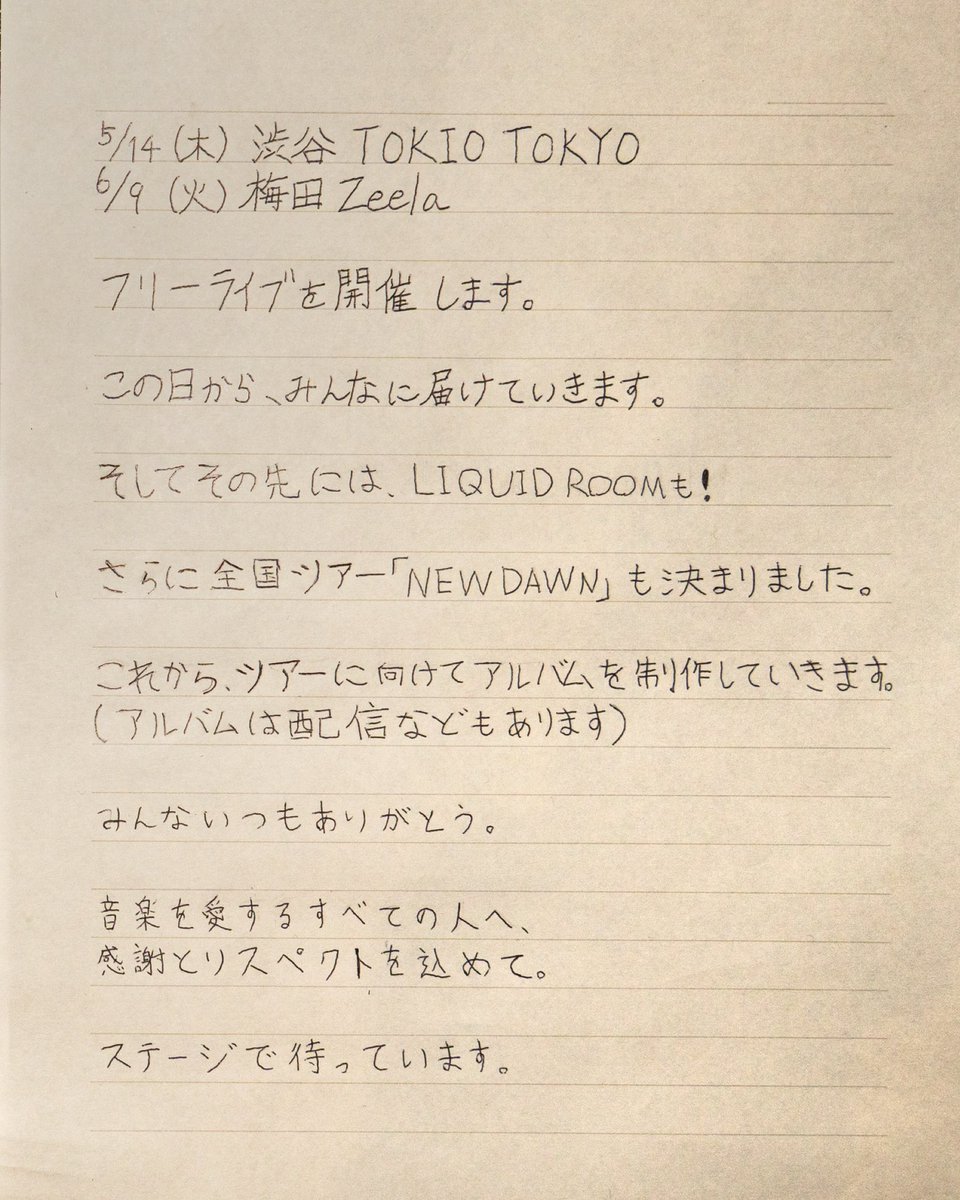 5/14(木) 渋谷 TOKIO TOKYO
6/9 (火) 梅田 Zeela
フリーライブを開催します。
この日から、みんなに届けていきます。
そしてその先には、LIQUID ROOMも!
さらに全国ツアー「NEW DAWN」も決まりました。
これから、ツアーに向けてアルバムを制作していきます。
(アルバムは配信などもあります)
みんないつもありがとう。
音楽を愛するすべての人へ、
感謝とリスペクトを込めて。
ステージで待っています。